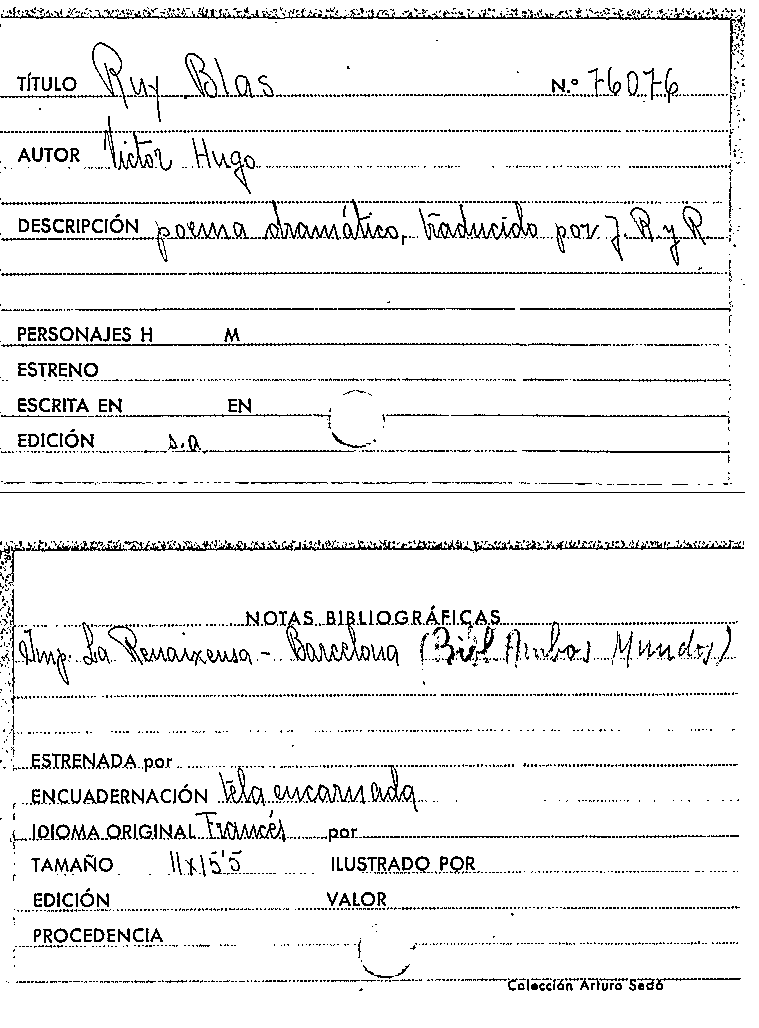 TÍTULO Ruy Blas N.º 76076
AUTOR Victor Hugo
DESCRIPCIÓN poema dramático, traducido por J. R. y R.
PERSONAJES H M
ESTRENO
ESCRITA EN EN
EDICIÓN s.a
NOTAS BIBLIOGRÁFICAS
Imp. La Renaixensa - Barcelona (Bibl Ambos Mundos)
ESTRENADA por
ENCUADERNACIÓN tela encarnada
IDIOMA ORIGINAL Francés por
TAMAÑO 11x15'5 ILUSTRADO POR
EDICIÓN VALOR
PROCEDENCIA
Colección Arturo Sedó